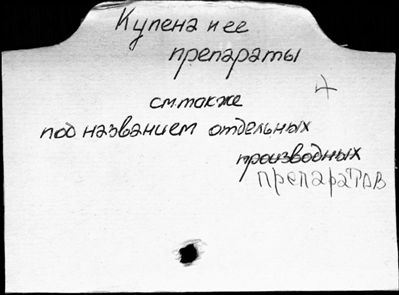 Купена и ее
препараты
см. также
под названием отдельных
производных
препаратов